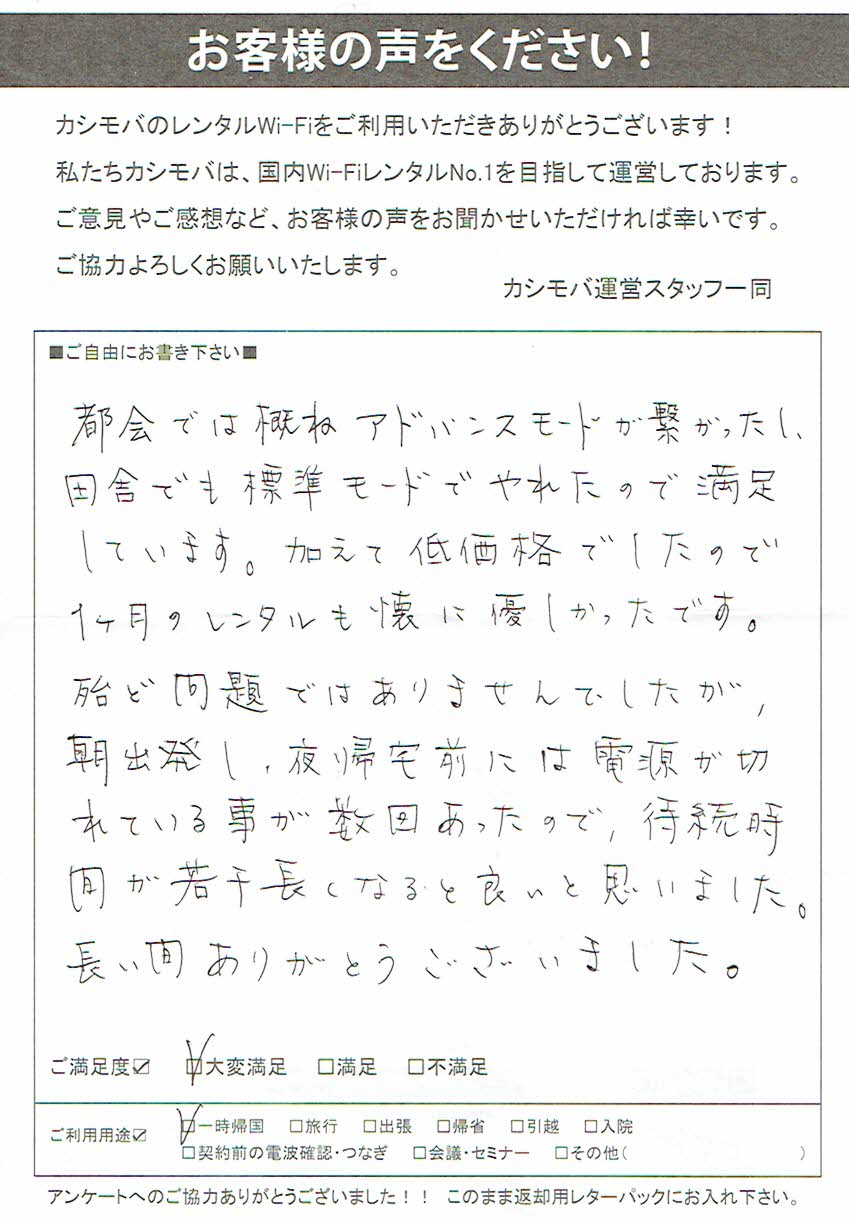 お客様の声をください！
カシモバのレンタルWi-Fiをご利用いただきありがとうございます！
私たちカシモバは、国内Wi-FiレンタルNo.1を目指して運営しております。
ご意見やご感想など、お客様の声をお聞かせいただければ幸いです。
ご協力よろしくお願いいたします。
カシモバ運営スタッフ一同
■ご自由にお書き下さい■
都会では概ねアドバンスモードが繋がったし、
田舎でも標準モードでやれたので満足
しています。加えて低価格でしたので
1ヶ月のレンタルも懐に優しかったです。
殆ど問題ではありませんでしたが、
朝出発し、夜帰宅前には電源が切
れている事が数回あったので、待続時
間が若干長くなると良いと思いました。
長い間ありがとうございました。
ご満足度☑ ☑大変満足 □満足 □不満足
ご利用用途☑ ☑一時帰国 □旅行 □出張 □帰省 □引越 □入院
□契約前の電波確認・つなぎ □会議・セミナー □その他( )
アンケートへのご協力ありがとうございました！！ このまま返却用レターパックにお入れ下さい。